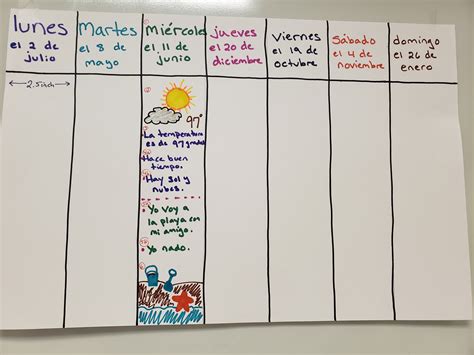 lunes
el 2 de
julio
Martes
el 8 de
mayo
miércoles
el 11 de
junio
jueves
el 20 de
diciembre
viernes
el 19 de
octubre
sábado
el 4 de
noviembre
domingo
el 26 de
enero
2.5 inch
97°
La temperatura
es de 97 grados
Hace buen
tiempo.
Hay sol y
nubes.
Yo voy a
la playa con
mi amigo.
Yo nado.